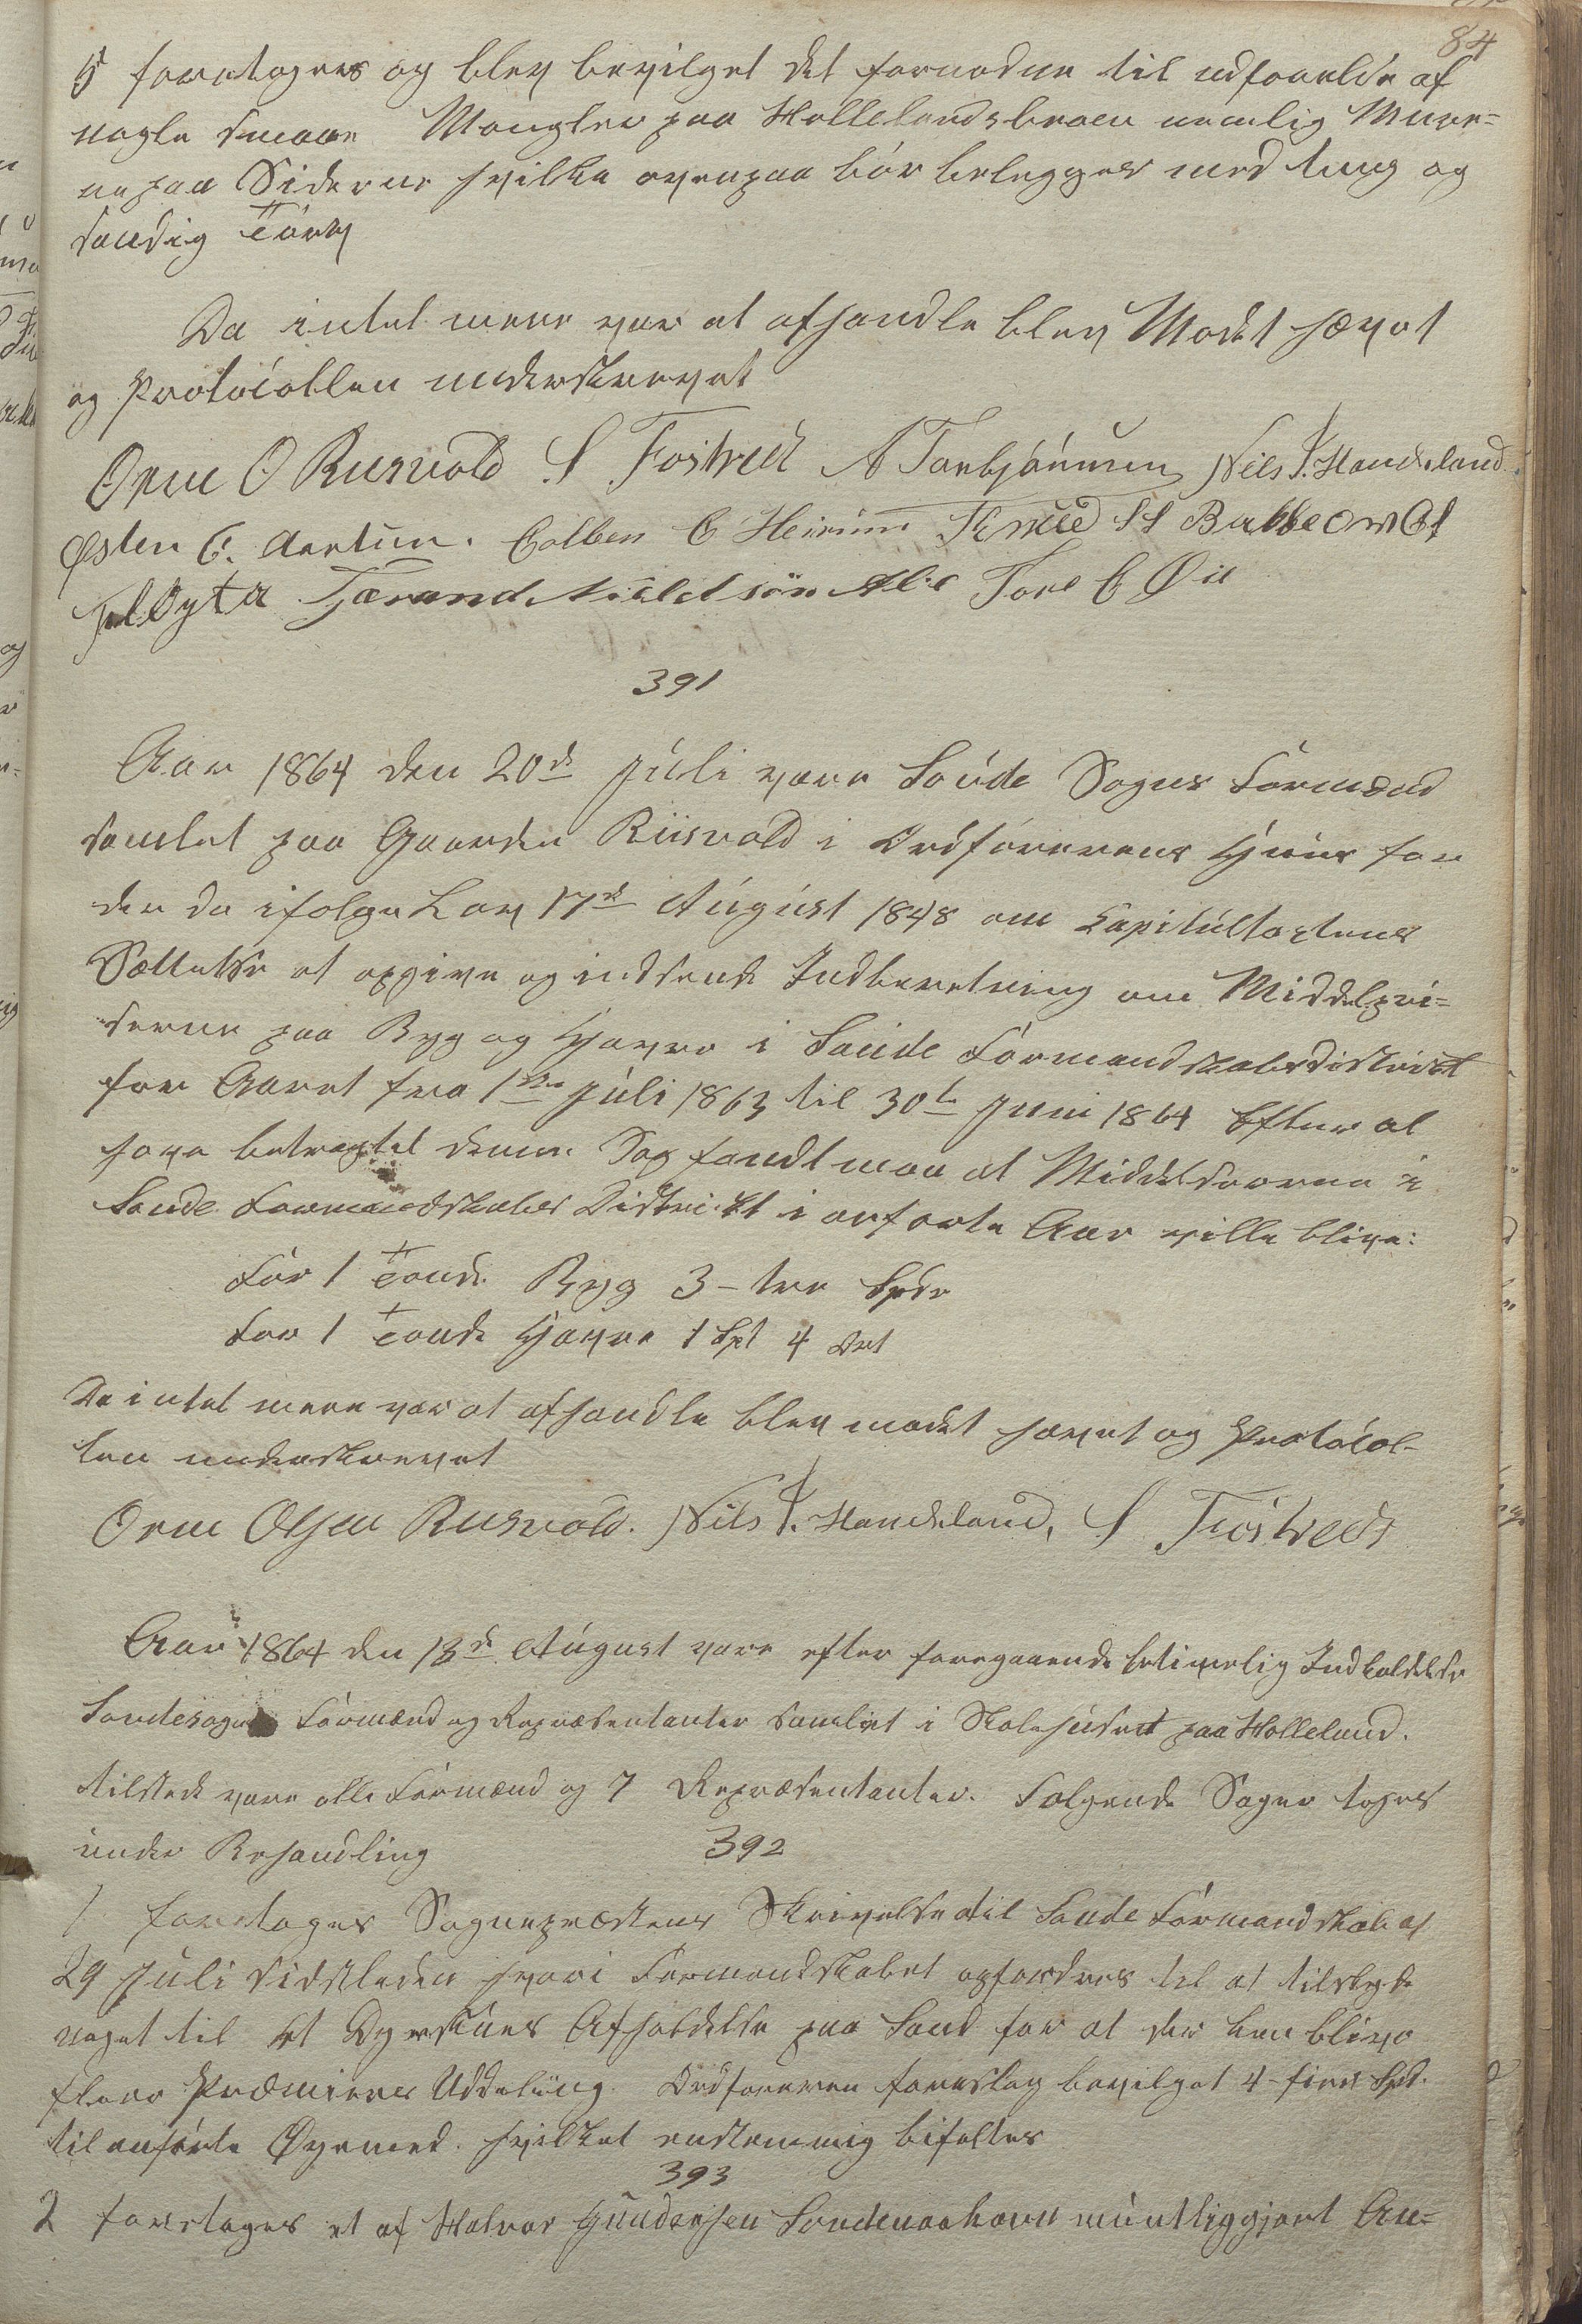 84
5 foretoges og blev bevilget det fornødne til udførelse af
nogle smaae Mangler paa Hollelandsbroen nemlig Mure-
ne paa Siderne hvilke ovenpaa bør belegges med tung og
sandig Törv
Da intet mere var at afhandle blev Mødet hævet
og Protocollen underskrevet
Orm O Riisvold S Fostvedt A Torbjörnsen Nils J. Handeland
Østen E. Aartun. Colben C Heirim
Tore C Øie
391
Aar 1864 den 20de Júli vare Saúde Sogns Formænd
samlet paa Gaarden Riisvold i Ordförerens Huus for
der da ifølge Lov 17de Aúgúst 1848 om Capitúltaxtens
Sættelse at opgive og indsende Indberetning om Middelpri-
serne paa Byg og Havre i Saúde Formandskabsdistrict
for Aaret fra 1ste Júli 1863 til 30te Juni 1864 Efter at
have betragtet denne Sag fandt man at Middelpriserne i
Saude Formandskabs District i anførte Aar ville blive:
For 1 Tønde Byg 3 - tre Spdr
For 1 Tønde Havre 1 Spd 4 Ort
Da intet mere var at afhandle blev mødet hævet og Protócol-
len underskrevet
Orm Olsen Riisvold. Nils J. Handeland, S Fostvedt
Aar 1864 den 13de Aúgust vare efter foregaaende betimelig Indkaldelse
Saudesogns Formænd og Repræsentanter samlet i Skolehúset paa Holleland.
tilstede vare alle Formænd og 7 Repræsentanter. Følgende Sager toges
under Behandling
392
1 foretoges Sognepræstens Skrivelse til Saude Formandskab af
29 Júli sidstleden hvori Formandskabet opfordres til at tilskyde
noget til et Dyrskúes Afholdelse paa Sand for at der kan blive
flere Præmiers Uddeling. Ordføreren foreslog bevilget 4 - fire Spd.
til anførte Øyemed. hvilket enstemmig bifaltes
393
2 foretoges et af Halvor Gúndersen Søndenaahavn múntliggjort An-